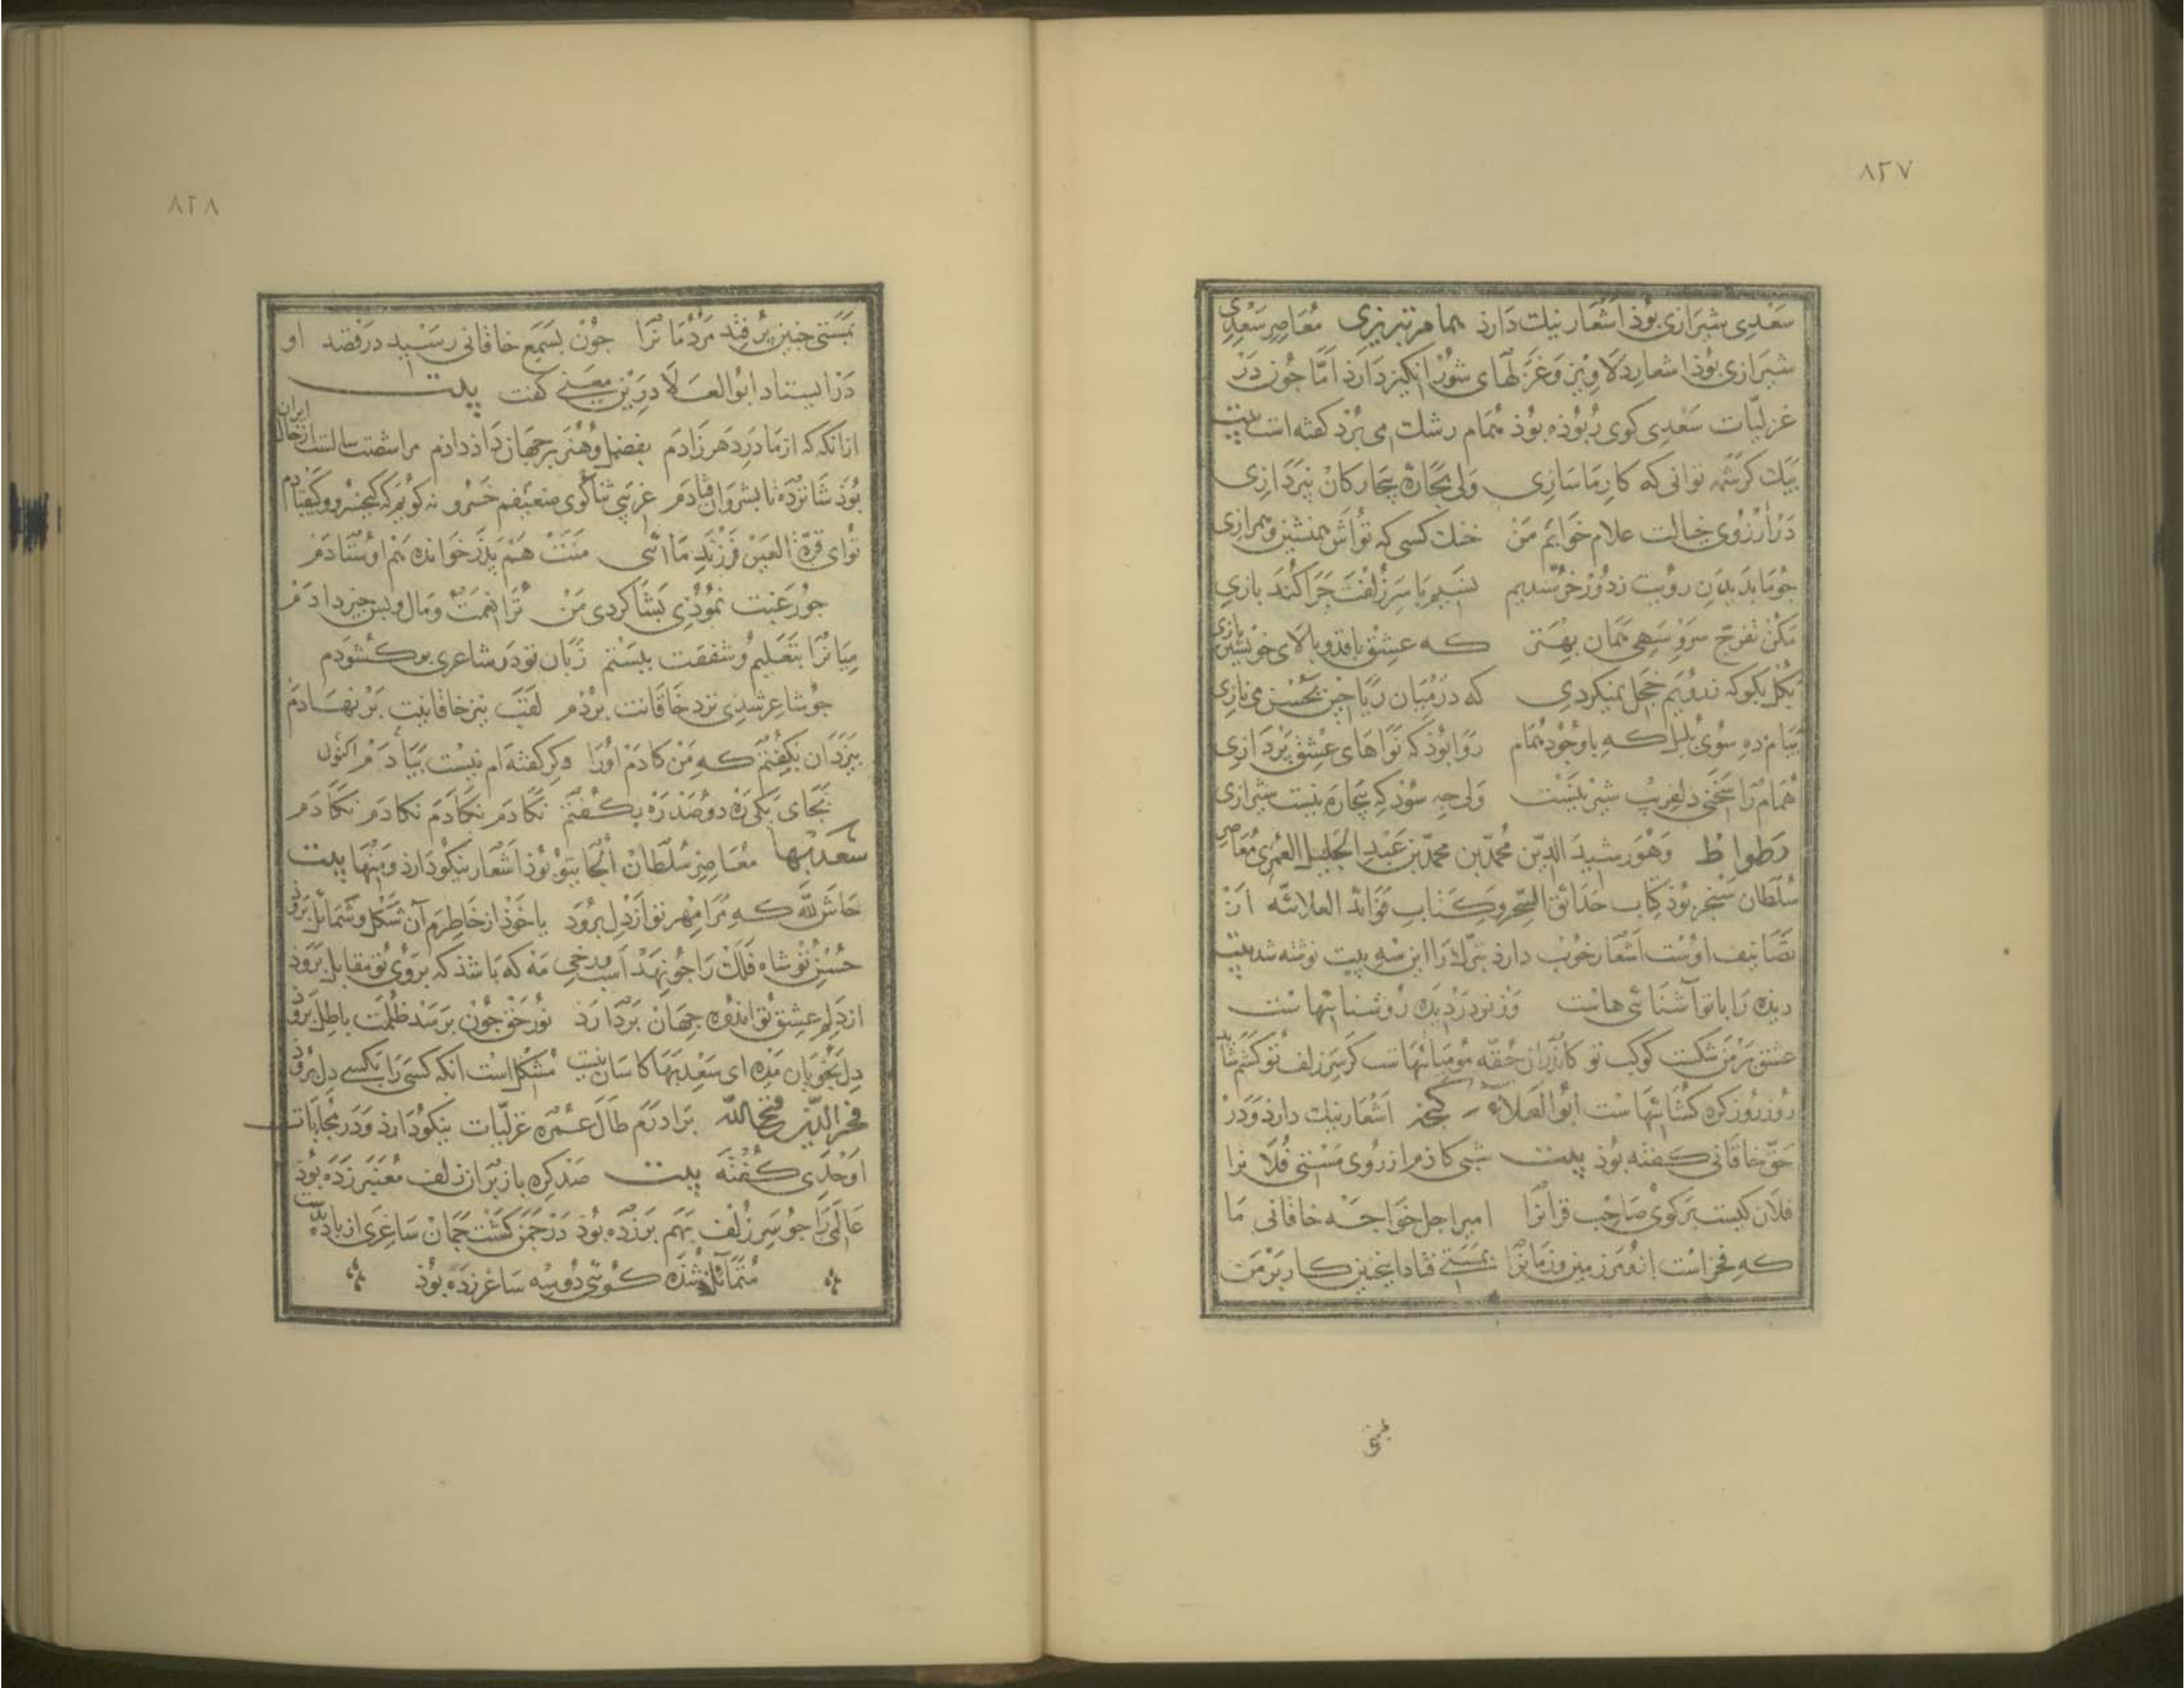 ۸۲۷
سعدی شیرازی بوذ اشعار نیك دارذ همام تبریزی معاصر سعدی
شیرازی بوذ اشعار دلاویز و غزلهای شورانکیز دارذ اما جون در
غزلیات سعدی کوی ربوذه بوذ همام رشك می برد کفته است بیت
بیك کرشمه توانی که کار ما سازی ولی بجاره بیجارکان نبردازی
در آرزوی خیالت غلام خوابم من خنك کسی که تو اش همنشین و همرازی
جو ما بدیدن رویت ز دور خرسندیم نسیم با سر زلفت جرا کند بازی
مکن تفرج سرو سهی همان بهتر که عشق با قد و بالای خویشتن بازی
بکل بکو که ز رویم خجل نمیکردی که در میان ریاحین بحسن می نازی
بیام ده سوی بلبل که با وجود همام روا بوذ که نواهای عشق بردازی
همام را سخنی دلفریب شیرینست ولی جه سوذ که بیجاره نیست شیرازی
وطواط وهو رشید الدین محمد بن محمد بن عبد الجلیل العمری معاصر
سلطان سنجر بوذ کتاب حدائق السحر وکتاب فوائد العلائیه از
تصانیف اوست اشعار خوب دارذ تبرك را این سه بیت نوشته شد بیت
دیذه را با تو آشنائی هاست وز تو در دیده روشنائیهاست
عشق بر من شکست کوکب تو کاندران حقه مومیائیهاست کر سر زلف تو
روز روز کره کشائیهاست ابو العلاء کنجه اشعار نیك دارذ و در
حق خاقانی کفته بوذ بیت شبی کاذم از روی مستی فلانرا
فلان کیست بر کوی صاحب قرانرا امیر اجل خواجه خاقانی ما
که فخر است ازو مر زمین و زمانرا بمستی فتاد اینجنین کار بر من
بمستی
۸۲۸
بمستی جنین بر فتد مردمانرا جون بسمع خاقانی رسید در قصد او
در ایستاد ابو العلا در این معنی کفت بیت
از آنکه که از مادر دهر زادم بفضل و هنر بر جهان داذ دادم مرا شصت سالست از خاك ایران
بوذ شانزده تا بشروان فتادم غریبی ثناکوی ضعیفم خسرو نه کویم که کیخسرو و کیقبادم
تو ای قرة العین فرزند مائی منت هم بدر خوانده هم اوستادم
جو رغبت نموذی بشاکردی من ترا نعمت و مال و بس جیز دادم
میانرا بتعلیم و شفقت ببستم زبان تو در شاعری بر کشودم
جو شاعر شدی نزد خاقانت بردم لقب نیز خاقانیت بر نهادم
بیزدان بکفتم که من کادم اورا وکر کفته ام نیست بیادم اکنون
بجای یکی ره دو صد ره بکفتم نکادم نکادم نکادم نکادم
سعد بها معاصر سلطان الجایتو بوذ اشعار نیکو دارذ ومنها بیت
حاش لله که مرا مهر تو از دل برود یا خود از خاطرم آن شکل و شمائل برود
حسن تو شاه فلك را جو نهد اسب و رخی مه که باشد که بروی تو مقابل برود
از دلم عشق تو اندوه جهان بردارد نور حق جون برسد ظلمت باطل برود
دل بخوبان مده ای سعد بها کاسان نیست مشکل است انکه کسی را بکسی دل برود
فخر الدین فتح الله برادرم طال عمره غزلیات نیکو دارد و در مجابات
اوحدی کفته بیت صد کره باز بر ان زلف معنبر زده بوذ
عالمی را جو سر زلف بهم برزده بوذ در جمن کشت جمان ساغری از باده بدست
متمائل شده کوئی دو سه ساغر زده بوذ